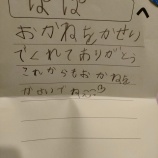 ぱぱ
おかねをかせい
でくれてありがとう
これからもおかねを
かせいでね